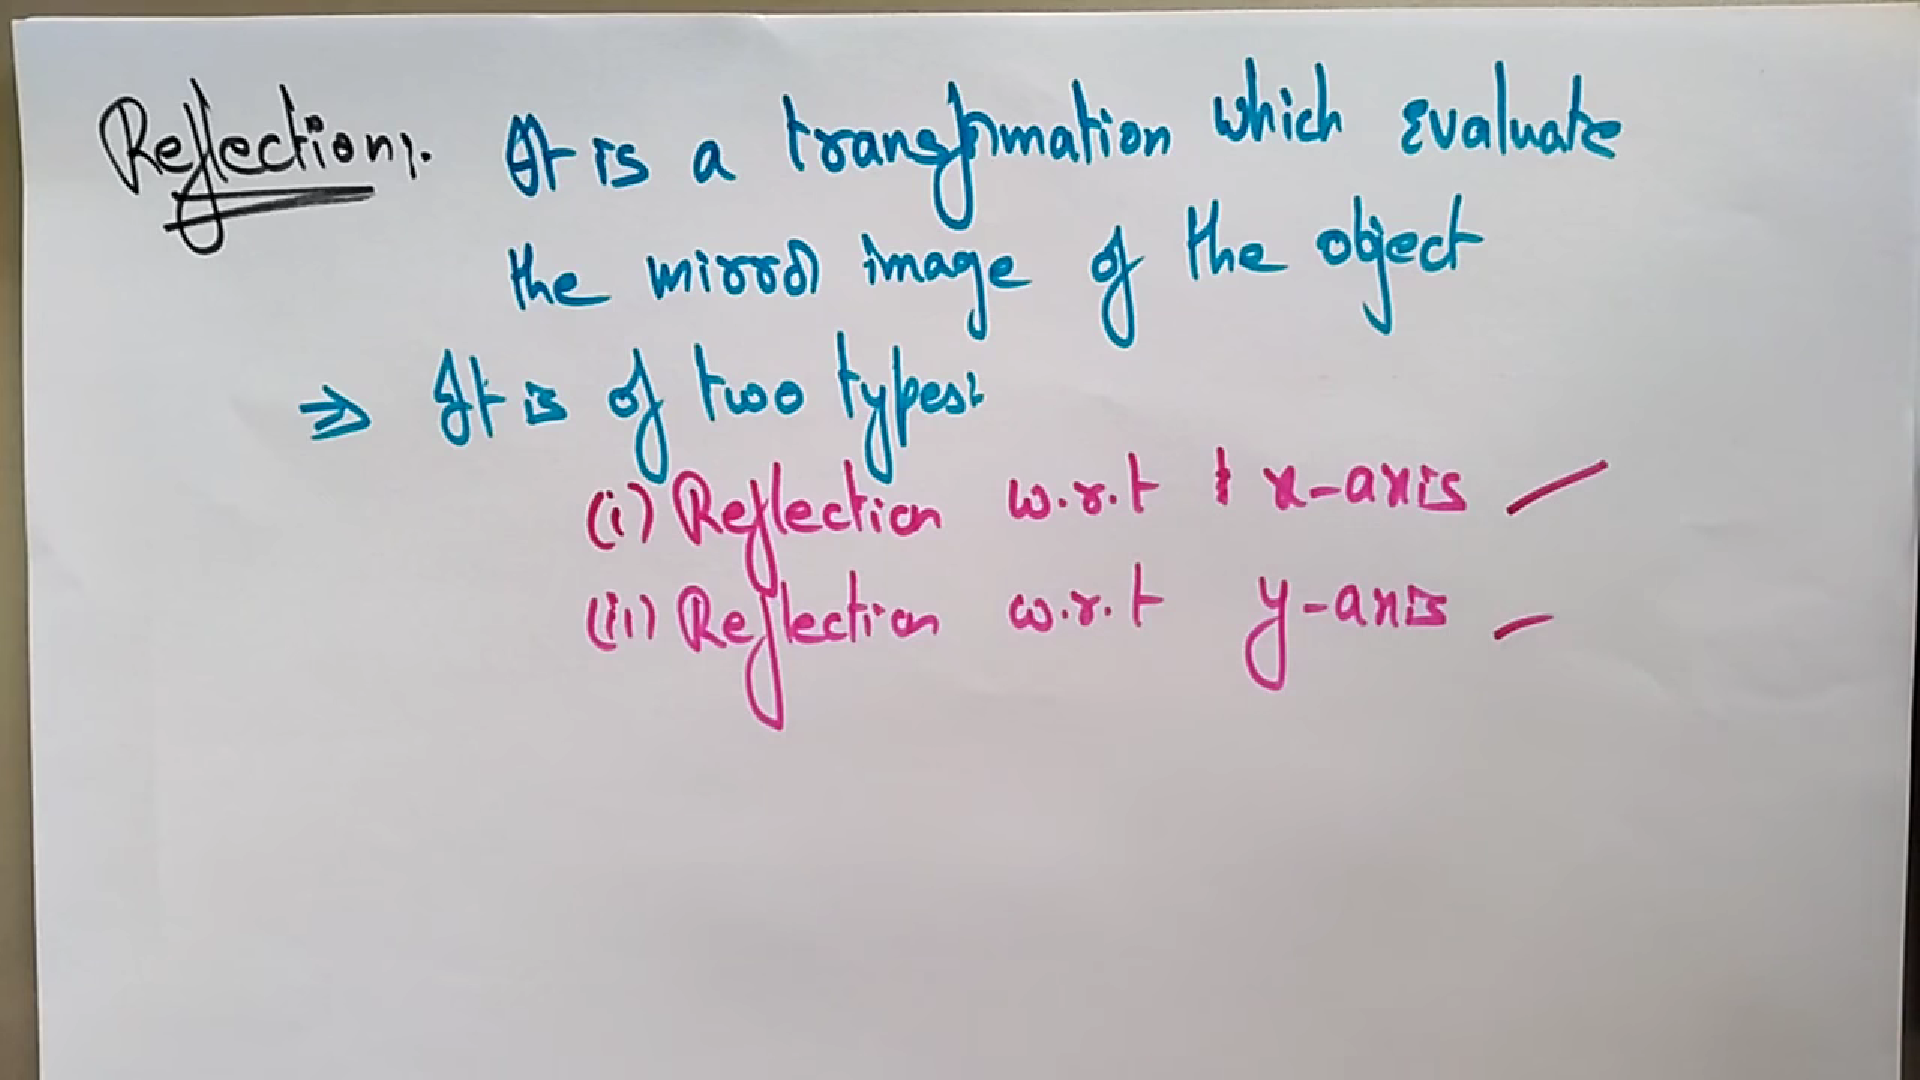 Reflection:. It is a transformation which evaluate
the mirror image of the object
⇒ It is of two types:
(i) Reflection w.r.t x-axis
(ii) Reflection w.r.t y-axis